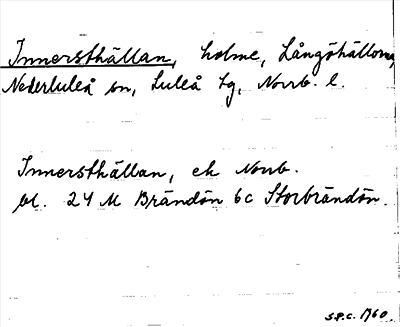 Innersthällan, holme, Långöhällorna,
Nederluleå sn, Luleå tg, Norrb. l.
Innersthällan, ek Norrb.
bl. 24 M Brändön 6c Storbrändön.
S.P.C. 1960.